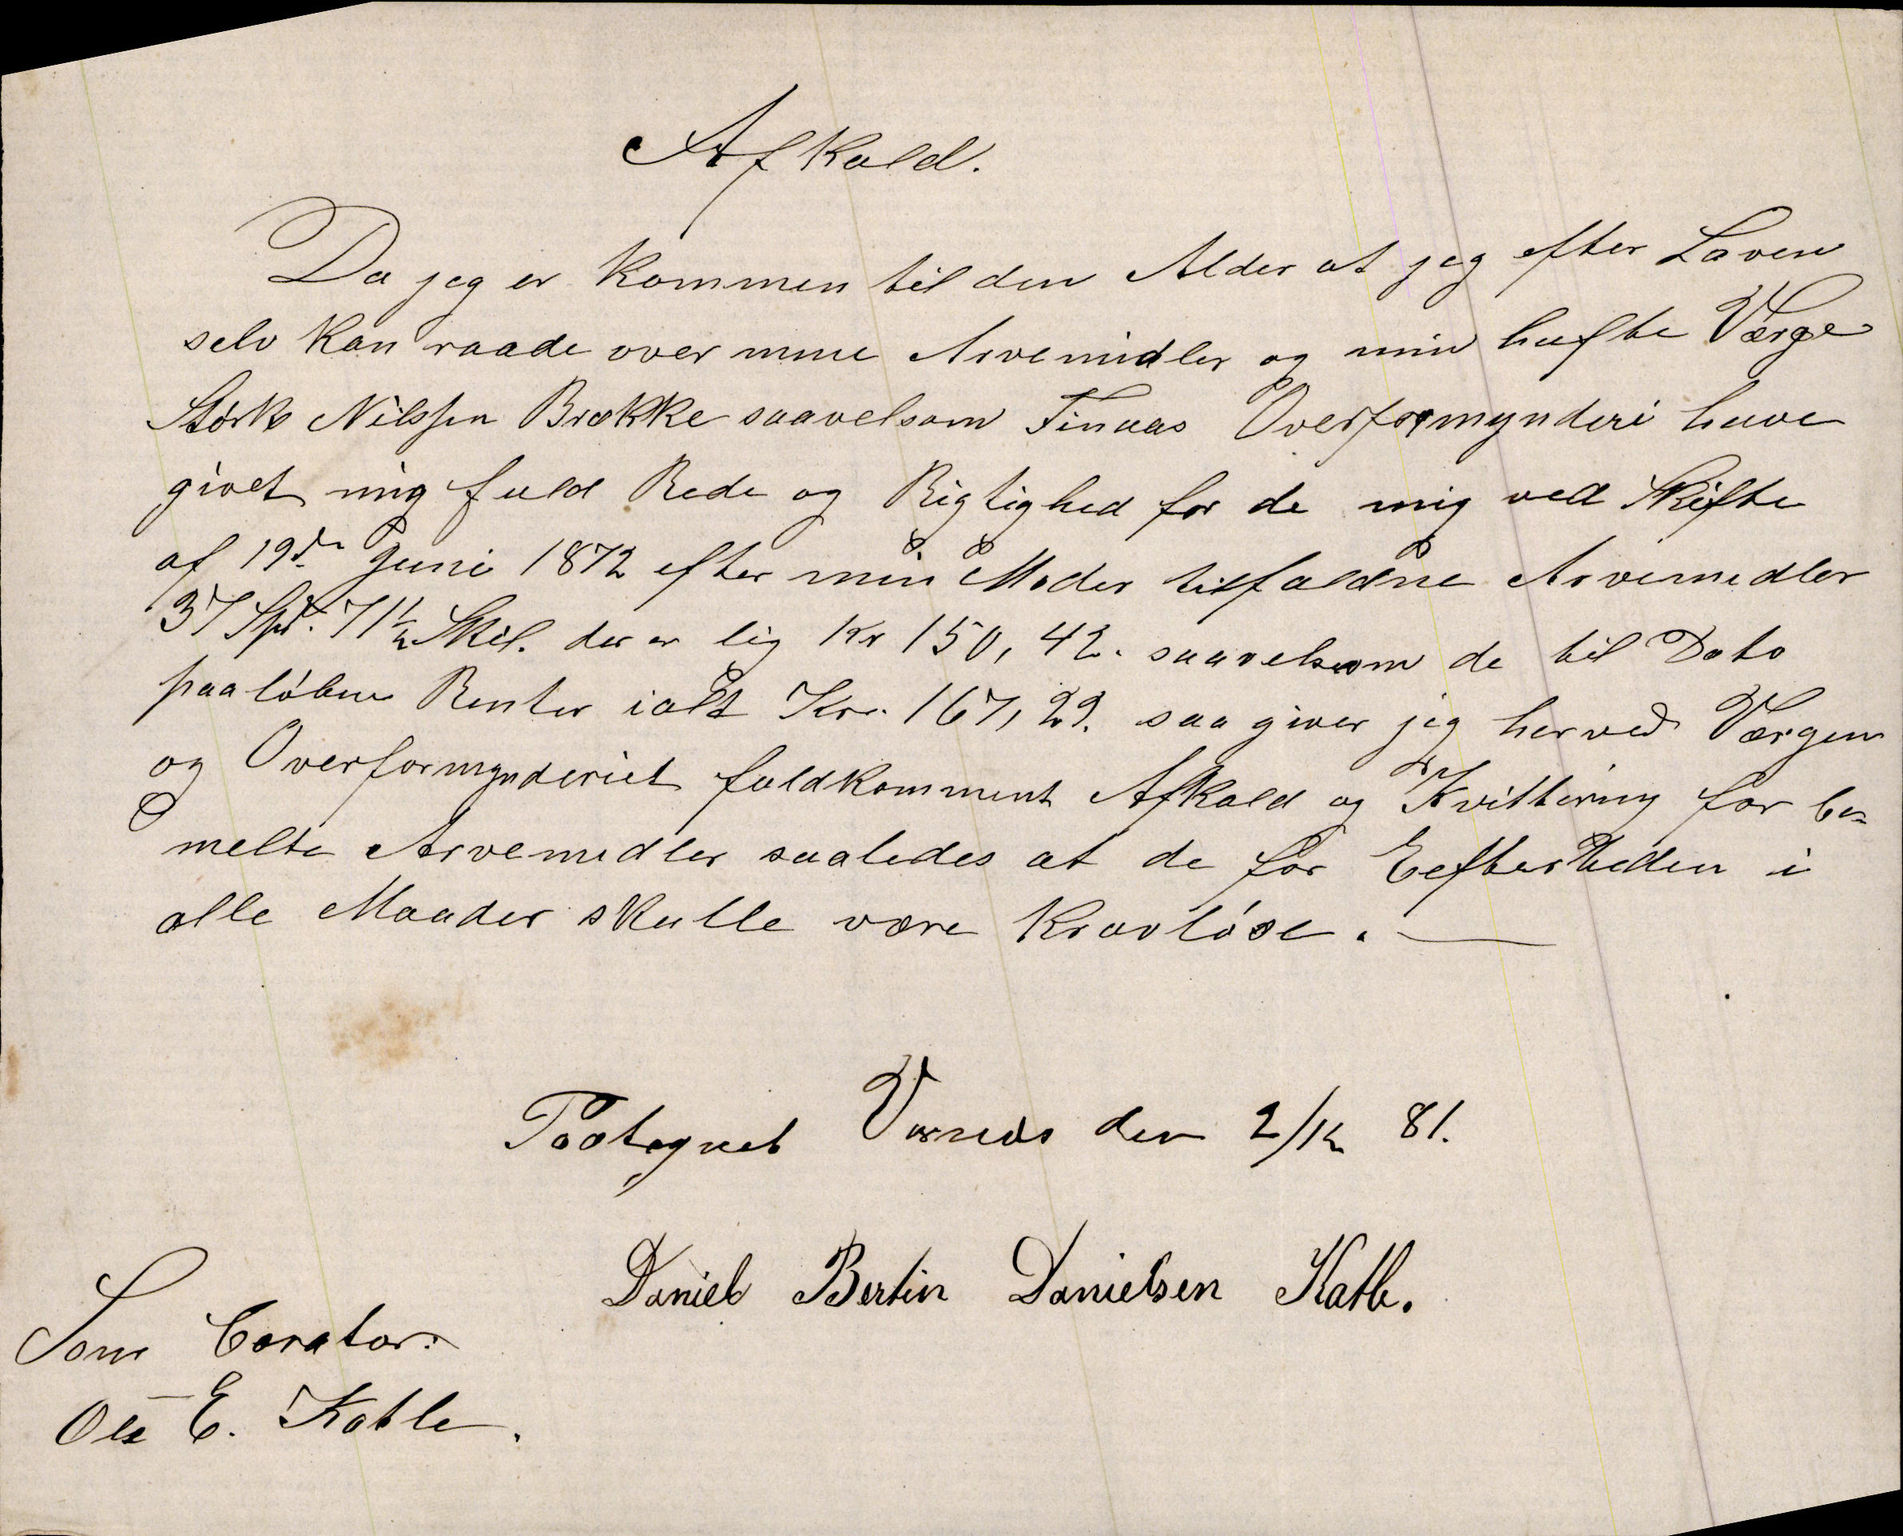 Afkald.
Da jeg er kommen til den Alder at jeg efter Loven
selv kan raade over mine Arvemidler og min hafte Værge
Størk Nilssen Brække saavelsom Finaas Overformynderi have
givet mig fuld Rede og Rigtighed for de mig ved Skifte
af 19de Juni 1872 efter min Moder tilfaldne Arvemidler
37 Spd. 71½ Skil. der er lig Kr 150,42. saavelsom de til Dato
paaløbne Renter ialt Kr. 167,29. saa giver jeg herved Værgen
og Overformynderiet fuldkomment Afkald og Kvittering for be=
melte Arvemidler saaledes at de for Eefterheden i
alle Maader skulle være kravløse. —
Paategnet den 2/12 81.
Daniel Bertin Danielsen Katle.
Som Corator:
Ole E. Katle.